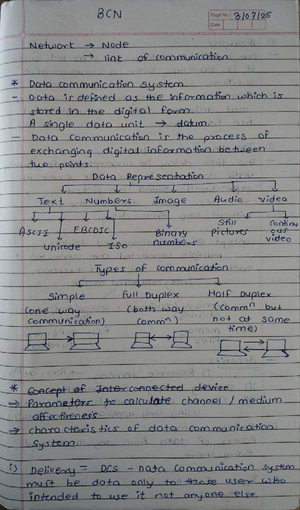 BCN
Page No.
Date
3/07/25
Network → Node
→ link of communication
* Data communication system
- Data is defined as the information which is
stored in the digital form.
A single data unit → datum.
- Data Communication is the process of
exchanging digital information between
two points.
Data Representation
Text Numbers Image Audio Video
ASCII EBCDIC Binary Still Continuous
Unicode ISO numbers pictures video
Types of communication
Simple Full Duplex Half Duplex
(one way (both way (commⁿ but
communication) commⁿ) not at same
time)
* Concept of Interconnected device
→ Parameters to calculate channel / medium
affectiveness
→ characteristics of data communication
System
1) Delivery = DCS - Data communication system
must be data only to those user who
intended to use it not anyone else